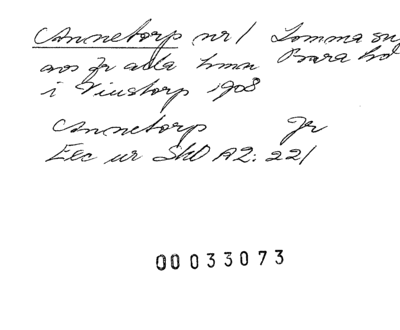 Annetorp nr 1 Lomma sn
avs fr alla hmn Bara hd
i Vinstorp 1908
Annetorp fr
Exc ur SkO A2: 221
00033073